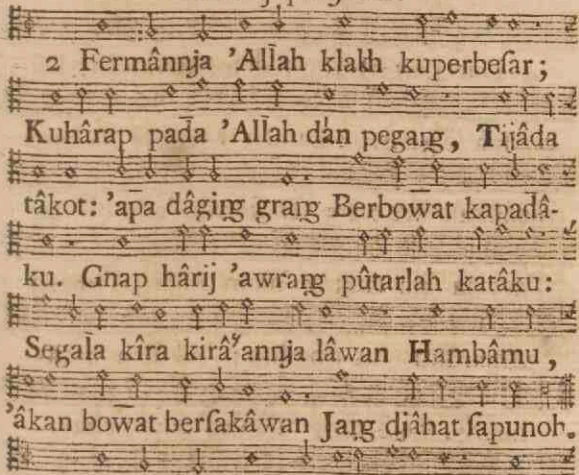 2 Fermânnja ’Allah klakh kuperbeſar;
Kuhârap pada ’Allah dân pegarg, Tijâda
tâkot: ’apa dâging grang Berbowat kapadâ-
ku. Gnap hârij ’awrang pûtarlah katâku:
Segala kîra kirâʼannja lâwan Hambâmu,
’âkan bowat berſakâwan Jang djâhat ſapunoh.